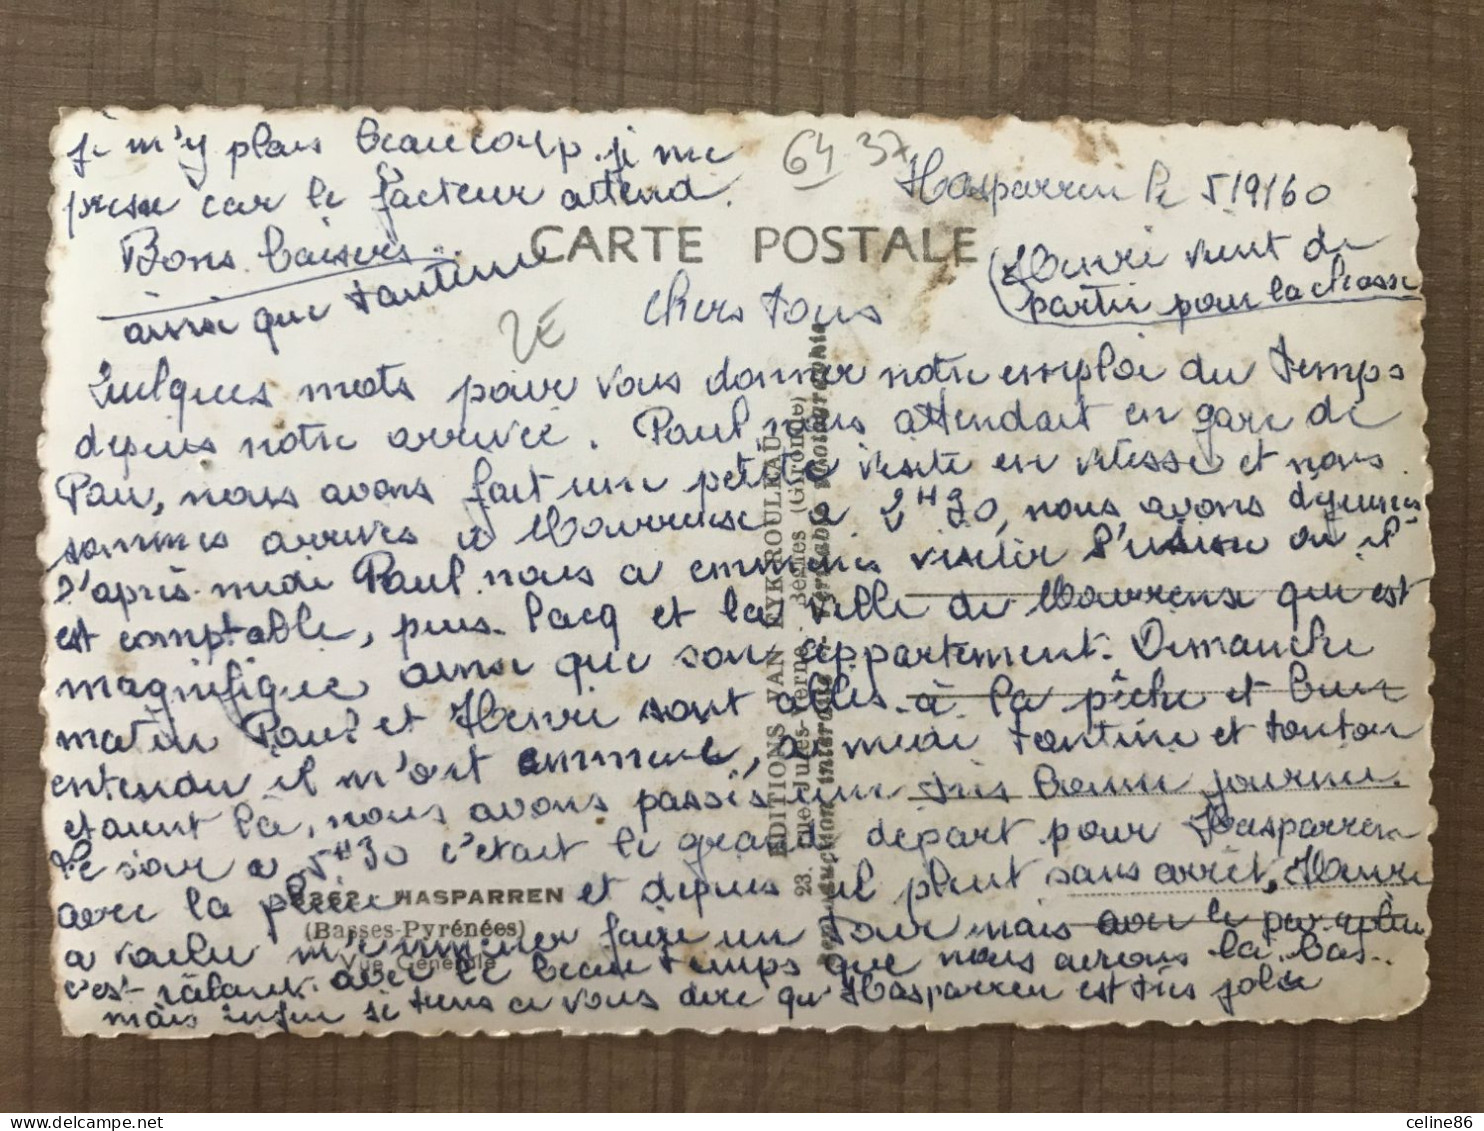 64 37
Hasparren le 5/9/60
CARTE POSTALE
(Henri vient de
partir pour la chasse
2E
Chers tous
Quelques mots pour vous donner notre emploi du temps
depuis notre arrivée. Paul nous attendait en gare de
Pau, nous avons fait une petite visite en vitesse et nous
sommes arrivés à Mourenx à 2H30, nous avons déjeunés
l'après-midi Paul nous a emmenés visiter l'usine où il
est comptable, puis Lacq et la ville de Mourenx qui est
magnifique ainsi que son appartement. Dimanche
matin Paul et Henri sont allés à la pêche et bien
entendu il m'ont emmené, à midi Tantine et tonton
étaient là, nous avons passés une très bonne journée.
Le soir à 5H30 c'était le grand départ pour Hasparren
avec la pluie et depuis il pleut sans arrêt, Henri
a voulu m'emmener faire un tour mais avec le
c'est râlant avec le beau temps que nous avions là-bas..
mais enfin si tiens à vous dire qu'Hasparren est très jolie
ji m'y plais beaucoup. ji me
presse car le facteur attend.
Bons baisers...
ainsi que tantine
EDITIONS VAN EYKROULEAU
23, Rue Jules-Verne - Bègles (Gironde)
Reproduction interdite - Véritable photographie
HASPARREN
(Basses-Pyrénées)
Vue Générale
celine86